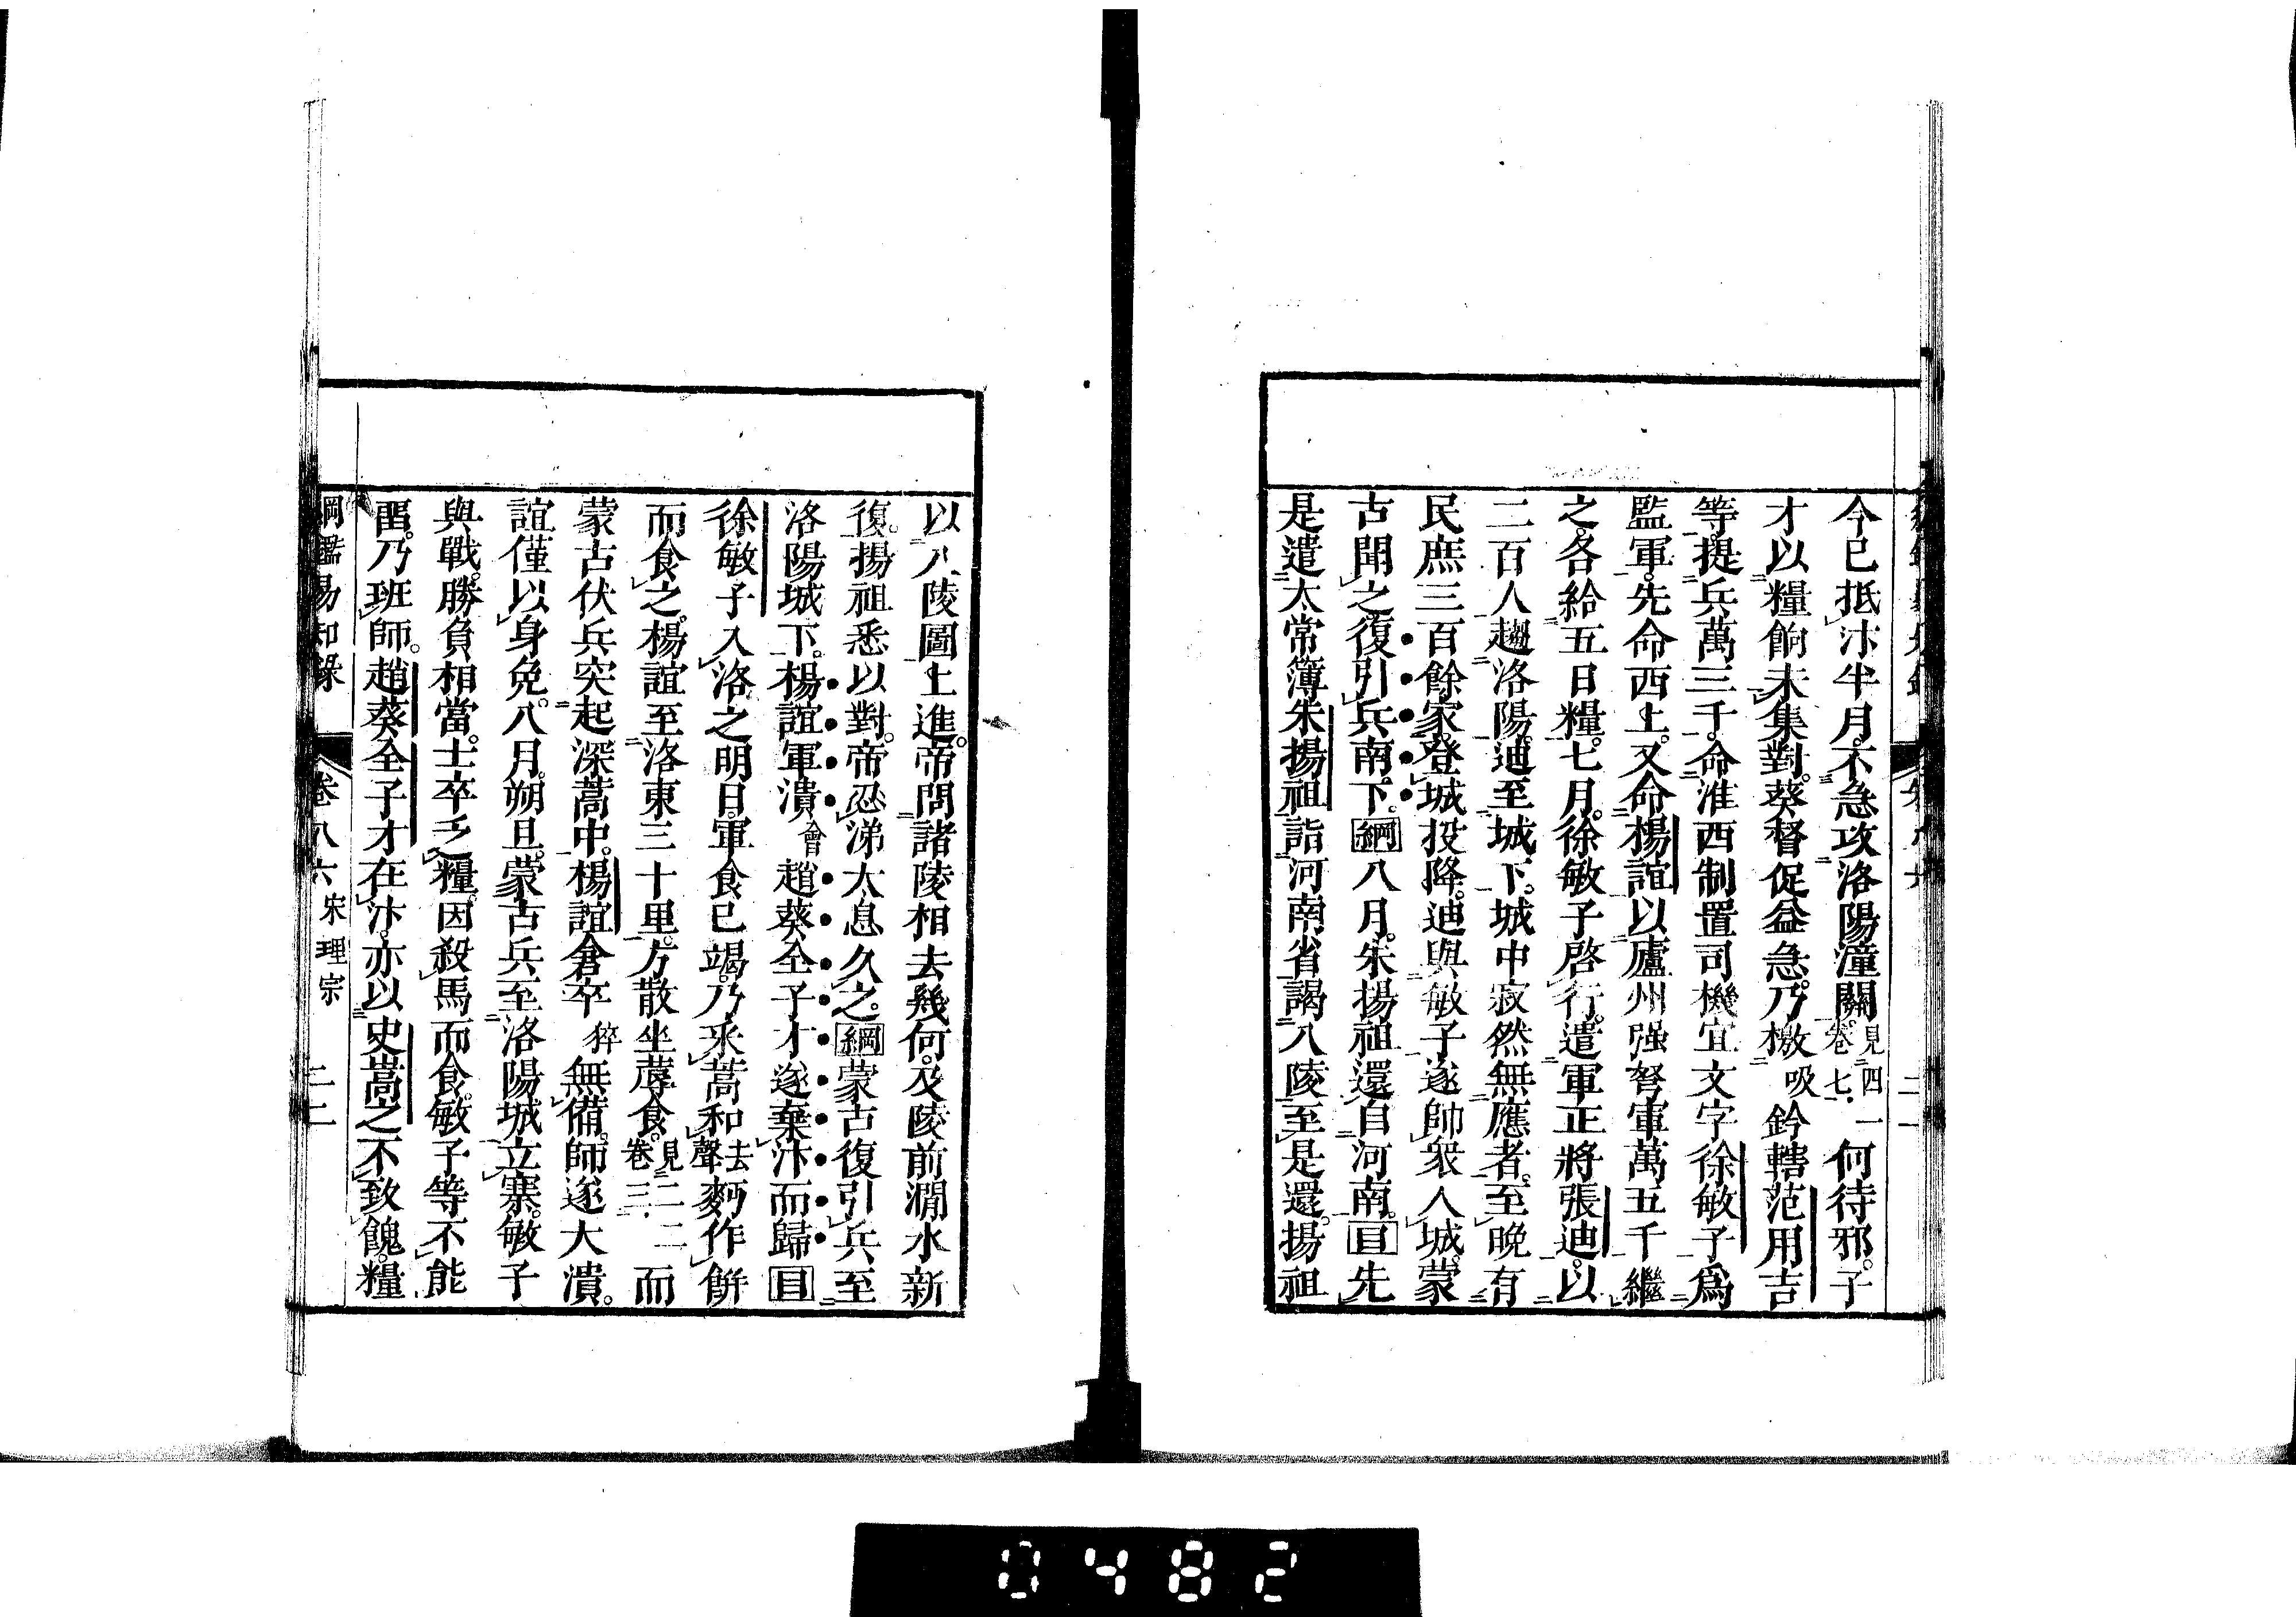 今已抵汴半月。不急攻洛陽潼關。見四卷七一何待邪。子
才以糧餉未集對。葵督促益急。乃檄吸鈐轄范用吉
等。提兵萬三千。命淮西制置司機宜文字徐敏子爲
監軍。先命西上。又命楊誼以廬州强弩軍萬五千繼
之。各給五日糧。七月。徐敏子啓行。遣軍正將張迪。以
二百人趨洛陽。迪至城下。城中寂然無應者。至晚有
民庶三百餘家。登城投降。迪與敏子遂帥衆入城。蒙
古聞之。復引兵南下。綱八月。朱揚祖還自河南。目先
是遣太常簿朱揚祖詣河南省謁八陵。至是還。揚祖
以八陵圖上進。帝問諸陵相去幾何。及陵前澗水新
復。揚祖悉以對。帝忍涕太息久之。綱蒙古復引兵至
洛陽城下。楊誼軍潰會趙葵全子才遂棄汴而歸目
徐敏子入洛之明日。軍食已竭。乃采蒿和去聲麪作餠
而食之。楊誼至洛東三十里。方散坐蓐食。見二二卷三而
蒙古伏兵突起深蒿中。楊誼倉卒猝無備。師遂大潰。
誼僅以身免。八月。朔旦。蒙古兵至洛陽城立寨。敏子
與戰。勝負相當。士卒乏糧。因殺馬而食。敏子等不能
畱。乃班師。趙葵全子才在汴。亦以史嵩之不致餽。糧
綱鑑易知錄 卷八六 宋理宗 二二